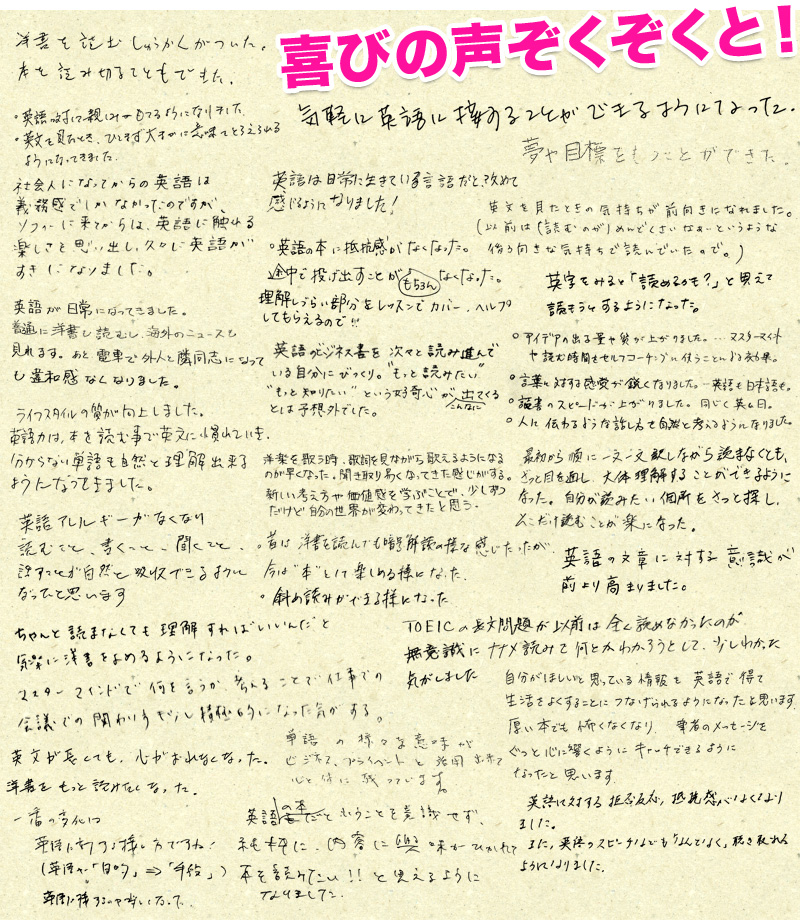 喜びの声ぞくぞくと!
洋書を読むしゅうかんがついた。
本を読み切ることもできた。
気軽に英語に接することができるようになった。
夢や目標をもつことができた。
・英語に対して親しみをもてるようになりました
・英文を見たとき、ひるまず大まかに意味をとらえられる
ようになってきました。
社会人になってからの英語は
義務感でしかなかったのですが、
ソフィーに来てからは、英語に触れる
楽しさを思い出し、久々に英語が
すきになりました。
英語が日常になってきました。
普通に洋書も読むし、海外のニュースも
見れます。あと電車で外人と隣同志になって
も違和感なくなりました。
ライフスタイルの質が向上しました。
英語力は、本を読む事で英文に慣れていき、
分からない単語も自然と理解出来る
ようになってきました。
英語アレルギーがなくなり
読むこと、書くこと、聞くこと、
話すことが自然と吸収できるように
なったと思います
ちゃんと読まなくても理解すればいいんだと
気楽に洋書をよめるようになった。
マスターマインドで何を言うか、考えることで仕事での
会議での関わり方も少し積極的になった気がする。
英文が長くても、心がおれなくなった。
洋書をもっと読みたくなった。
一番の変化は
英語に対する接し方ですね!
(英語が「目的」⇒「手段」)
英語は日常に生きている言語だと、改めて
感じるようになりました!
・英語の本に抵抗感がなくなった。
途中で投げ出すことが(もちろん)なくなった。
理解しづらい部分をレッスンでカバー、ヘルプ
してもらえるので!!
英語ビジネス書を次々と読み進んで
いる自分にびっくり。"もっと読みたい"
"もっと知りたい"という好奇心がこんなに出てくる
とは予想外でした。
洋楽を歌う時、歌詞を見ながら歌えるようになる
のが早くなった。聞き取り易くなってきた感じがする。
新しい考え方や価値感を学ぶことで、少しずつ
だけど自分の世界が変わってきたと思う。
・昔は洋書を読んでも暗号解読の様な感じだったが
今は"本"として楽しめる様になった
・斜め読みができる様になった
TOEICの長文問題が以前は全く読めなかったのが
無意識にナナメ読みで何とかわかろうとして、少しわかった
気がしました
単語の様々な意味が
ビジネス、プライベートと活用出来て
心と体に残っています。
英語の本だということを意識せず、
純粋に、内容に興味がひかれて
本を読みたい!!と思えるように
なりました。
英文を見たときの気持ちが前向きになれました。
(以前は(読むのが)めんどくさいなぁーというような
後ろ向きな気持ちで読んでいたので。)
英字をみると「読めるかも?」と思えて
読もうとするようになった。
・アイデアの出る量や質が上がりました。…マスターマインド
や読む時間をセルフコーチングに使うことによる効果。
・言葉に対する感覚が鋭くなりました。…英語も日本語も。
・読書のスピードが上がりました。同じく英&日。
・人に伝わるような話し方を自然と考えるようになりました。
最初から順に一文一文訳しながら読まなくても、
ざっと目を通し、大体理解することができるように
なった。自分が読みたい個所をさっと探し、
そこだけ読むことが楽になった。
英語の文章に対する意識が
前より高まりました。
自分がほしいと思っている情報を英語で得て
生活をよくすることにつなげられるようになったと思います
厚い本でも怖くなくなり、筆者のメッセージを
ぐっと心に響くようにキャッチできるように
なったと思います
英語に対する拒否反応、抵抗感がなくなり
ました。
また、英語のスピーチなどでも、なんとなく、聴き取れる
ようになりました。